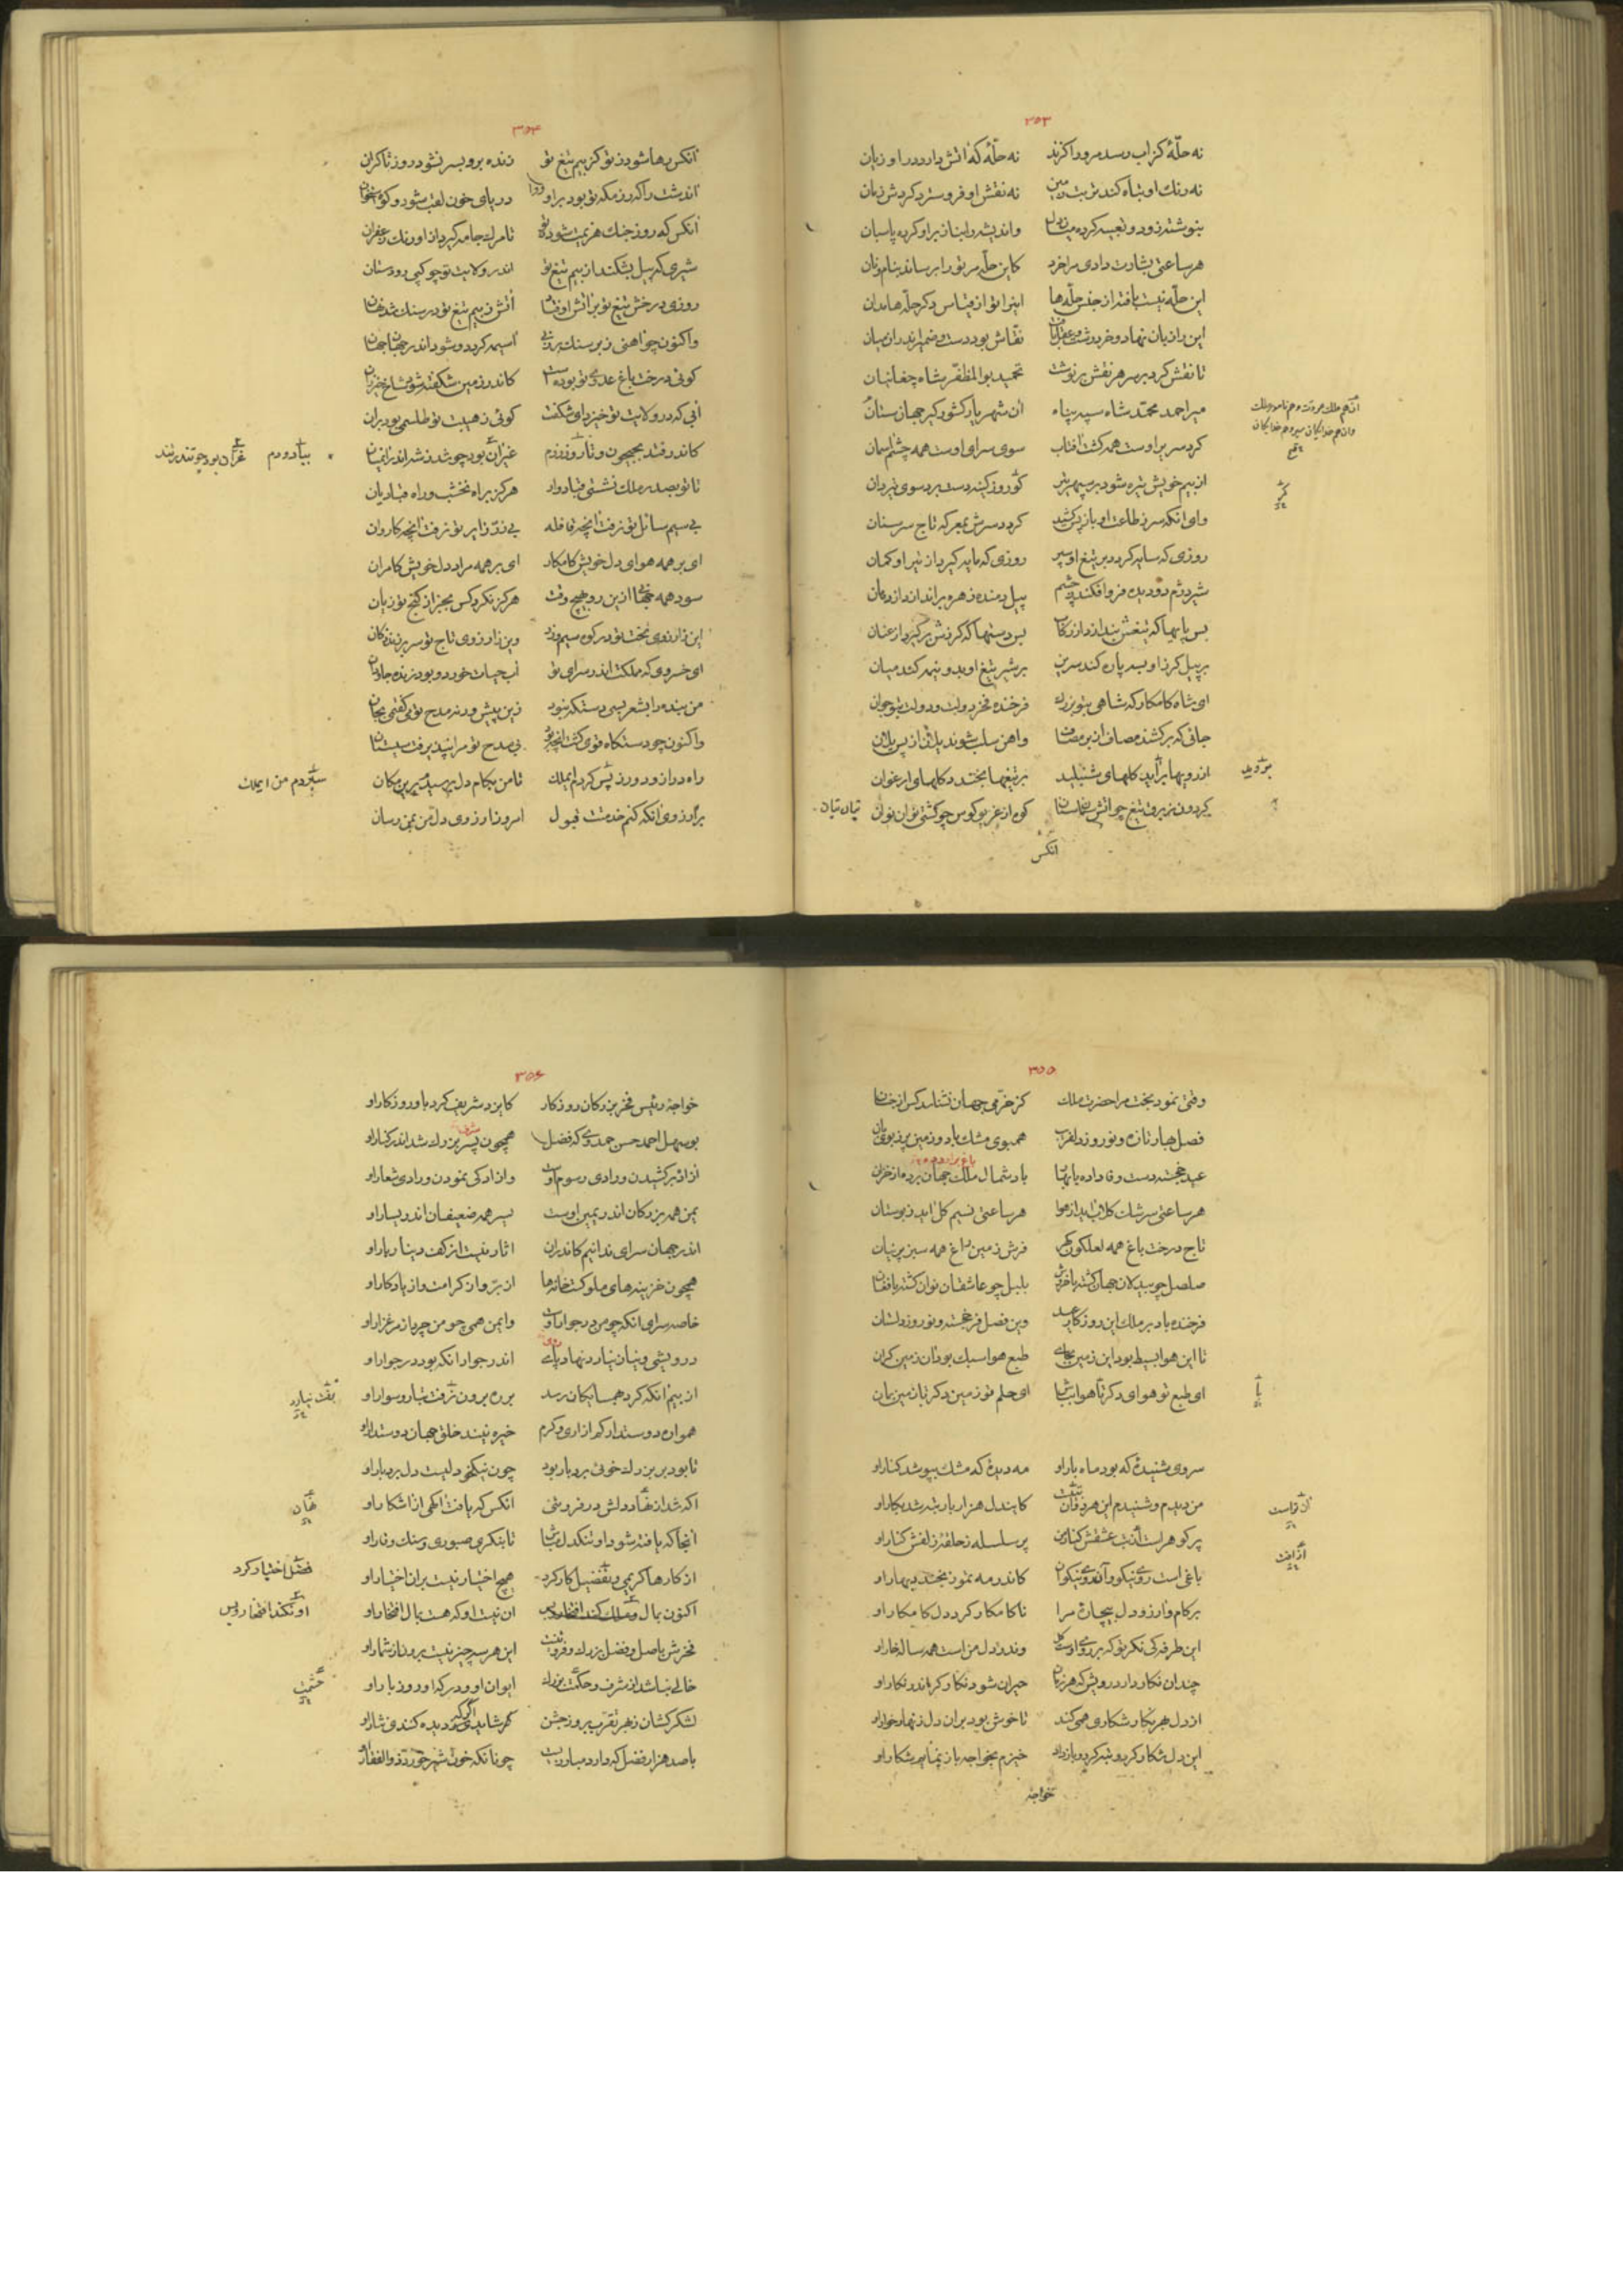 ۳۵۳
نه حلّهٔ کز اب رسد مرورا کزند نه حلّهٔ که اتش دارد ورا زیان
نه رنك او تباه کند تربت زمین نه نقش او فرو سترد کردش زمان
بنوشته زود و تعبیه کرده میان دل و اندیشه را بناز برا و کرده پاسبان
هر ساعتی بشارت دادی مرا خرد کاین حلّه مر تو را برساند بنام و نان
این حلّه نیست بافته از جنس حلّه ها این را تو از قیاس دکر حلّه ها مدان
این را زبان نهاد و خرد رشت و عقل بافت نقاش بود دست و ضمیر اندر ان میان
تا نقش کرد بر سر هر نقش بر نوشت تحمید بوالمظفّر شاه چغانیان
میر احمد محمّد شاه سپه پناه ان شهریار کشورکیر جهان ستان
کرد سر براوست همه کشت افتاب سوی سرای اوست همه چشم اسمان
از بیم خویش تیره شود بر سپهر تیر کو روز کینه دست برد سوی تیردان
وای انکه سر ز طاعت او باز پس کشید کردد سرش بمعرکه تاج سر سنان
روزی که سایه کردد بر تیغ او سپر روزی که مایه کیرد از تیر او کمان
شیر دژم دو دیده فرو افکند ز چشم پیل دمنده زهره براندازد از دهان
بس پایها که تیغش بندازد از رکاب بس دستها که کرزش برکیرد از عنان
بر پیل کرز او بسه پاره کند سرین بر شیر تیغ او بدو نیمه کند میان
ای شاه کامکار که شاهی بتو بزرك فرخنده فخر دولت و دولت بتو جوان
جائی که برکشند مصاف از بر مصاف و اهن سلب شوند یلان از پس یلان
از رویها براید کلهای شنبلید بر تیغها بخندد کلهای ارغوان
کردون ز برق تیغ چو اتش زبان زبان کوه از غریو کوس چو کشتی نوان نوان
انکس
۳۵۴
انکس رها شود ز تو کز بیم تیغ تو زنده بروبسر نشود روز تا کران
اندشت را که رزمکه تو بود براو دریای خون لقب شود و کوه استخوان
انکس که روز جنك هزیمت شود ز تو تا مرك جامه کیرد از او رنك زعفران
شیری که پیل بشکند از بیم تیغ تو اندر ولایت تو چو کپی رود ستان
روزی درخش تیغ تو بر اتش اوفتاد اتش ز بیم تیغ تو در سنك شد نهان
و اکنون چو اهنی زبر سنك برزنی اسیمه کردد و شود اندر جهان جهان
کوئی درخت باغ عدوی تو بوده است کاندر زمین شکفته شود شاخ خیزران
ابی که در ولایت تو خیزد ای شکفت کوئی ز هیبت تو طلسمی بود بران
کاندر فتد بجیحون و تا روز رزم عنبر ان بود چو شدن شیر اندر انمیان
تا تو بصدر ملك نشستی قبادوار هرکز براه نخشب و راه قبادیان
بی سیم سائل تو نرفت انچه قافله بی زر زایر تو نرفت انچه کاروان
ای بر همه هوای دل خویش کامکار ای بر همه مراد دل خویش کامران
سود همه جهان از این رو بهیچ وقت هرکز نکرد کس بجز از کنج تو زیان
این زارزوی تخت تو در کوه سیم و زر وین زارزوی تاج تو سر بر زند ز کان
ای خسروی که مملکت اندر سرای تو اب حیات خورد و بود زنده جاودان
من بنده را بشعر بسی دستکه نبود زین پیش ورنه مدح تو می کفتمی بجان
و اکنون چو دستکاه قوی کشت انچه بر بی مدح تو مرا نپذیرفت سیستان
راه دراز و دور ز پس کردم ایملك تا من بکام دل برسیدم بدین مکان
بر ارزوی انکه کنم خدمت قبول امروز ارزوی دل من بمن رسان
بیا رودم غرّان بود چو تندر تند
سپردم من ایملك
۳۵۵
وقتی نمود بخت مرا حضرت ملك کز خرمی جهان نشناسد کس از جنان
فصل بهار تازه و نوروز دلفریب همبوی مشك باد و زمین پر ز بوی بان
عید خجسته دست وفا داده با بهار باد شمال ملك جهان برده از خزان
هر ساعتی سرشك کلاب اید از هوا هر ساعتی نسیم کل اید ز بوستان
تاج درخت باغ همه لعلکون کهر فرش زمین راغ همه سبز پرنیان
صلصل چو بیدلان جهان کشته با خروش بلبل چو عاشقان نوان کشته با فغان
فرخنده باد بر ملك این روزکار عید وین فصل فرخجسته و نوروز دلستان
تا این هوا بسیط بود این زمین بجای طبع هوا سبك بود ان زمین کران
ای طبع تو هوای دکر با هوا بباش ای حلم تو زمین دکر با زمین بمان
سروی شنیدهٔ که بود ماه بار او مه دیدهٔ که مشك بپوشد کنار او
من دیدم و شنیدم این هر دو ان کاین دل هزار بار تبه شد بکار او
پر کوهر است ز عشقش کنار من پر سلسله ز حلقهٔ زلفش کنار او
باغی است روی نیکو و ان روی نیکوان کاندر مه تموز بخندد بهار او
بر کام و ارزو دل بیچاره مرا ناکامکار کرد دل کامکار او
این طرفه کی نکر تو که بر روی اوست کل وندر دل من است همه ساله خار او
چندان نکار دارد رویش که هر زمان حیران شود نکارکر اندر نکار او
از دل هر بکار شکاری همی کند تا خوش بود بران دل زنهار خوار او
این دل شکار کرد و تبه کرد و باز داد خیزم بخواجه باز نمایم شکار او
خواجه
۳۵۶
خواجه رئیس فخر بزرکان روزکار کایزد شریف کرد بدو روزکار او
بوسهل احمد حسن حمدوی که فضل همچون پسر بزرك شد اندر کنار او
ازاد برکشیدن و رادی رسوم اوست وازادکی نمودن و رادی شعار او
یمن همه بزرکان اندر یمین اوست یسر همه ضعیفان اندر یسار او
اندر جهان سرای ندانیم کاندران اثار نیست از کف دینار بار او
همچون خزینه های ملوکست خانها از برّ و از کرامت و از یادکار او
خاصه سرای انکه چو من در جوار اوست و ایمن همی چو من چرد از مرغزار او
درویشی و نیاز نیارد نهاد پای اندر جوار انکه بود در جوار او
از بیم انکه کرد همسایکان رسد بره برون نرفت نیارد سوار او
هموار دوستدار کم ازاری و کرم خیره نیند خلق جهان دوستدار او
تا بود بر بزرك خوئی بردبار بود چون نیکخو دلیست دل بردبار او
اکه شد از نهاد دلش در فروتنی انکس که یافت اکهی از اشکار او
انجا که یافته شود او تنکدل مباش تا بنکری صبوری و سنك و وقار او
از کارها کریمی و تفضیل کار کرد هیچ اختیار نیست بران اختیار او
اکنون بمال و ملك کند افتخار بس ان نیست او که هست بمال افتخار او
فخرش باصل و فضل بزرك و فروتنیست این هر سه چیز نیست برون از شمار او
خالی نباشد از شرف و حکمت بزرك ایوان او و درکه او روز بار او
لشکرکشان ز بهر تقرب بروز جشن کر شایدی ز دیده کنندی نثار او
با صد هزار فضل که دارد مبارزیست چونانکه خون شیر خورد ذوالفقار او
فضل اختیار کرد
او نکند افتخار و بس
حشمت